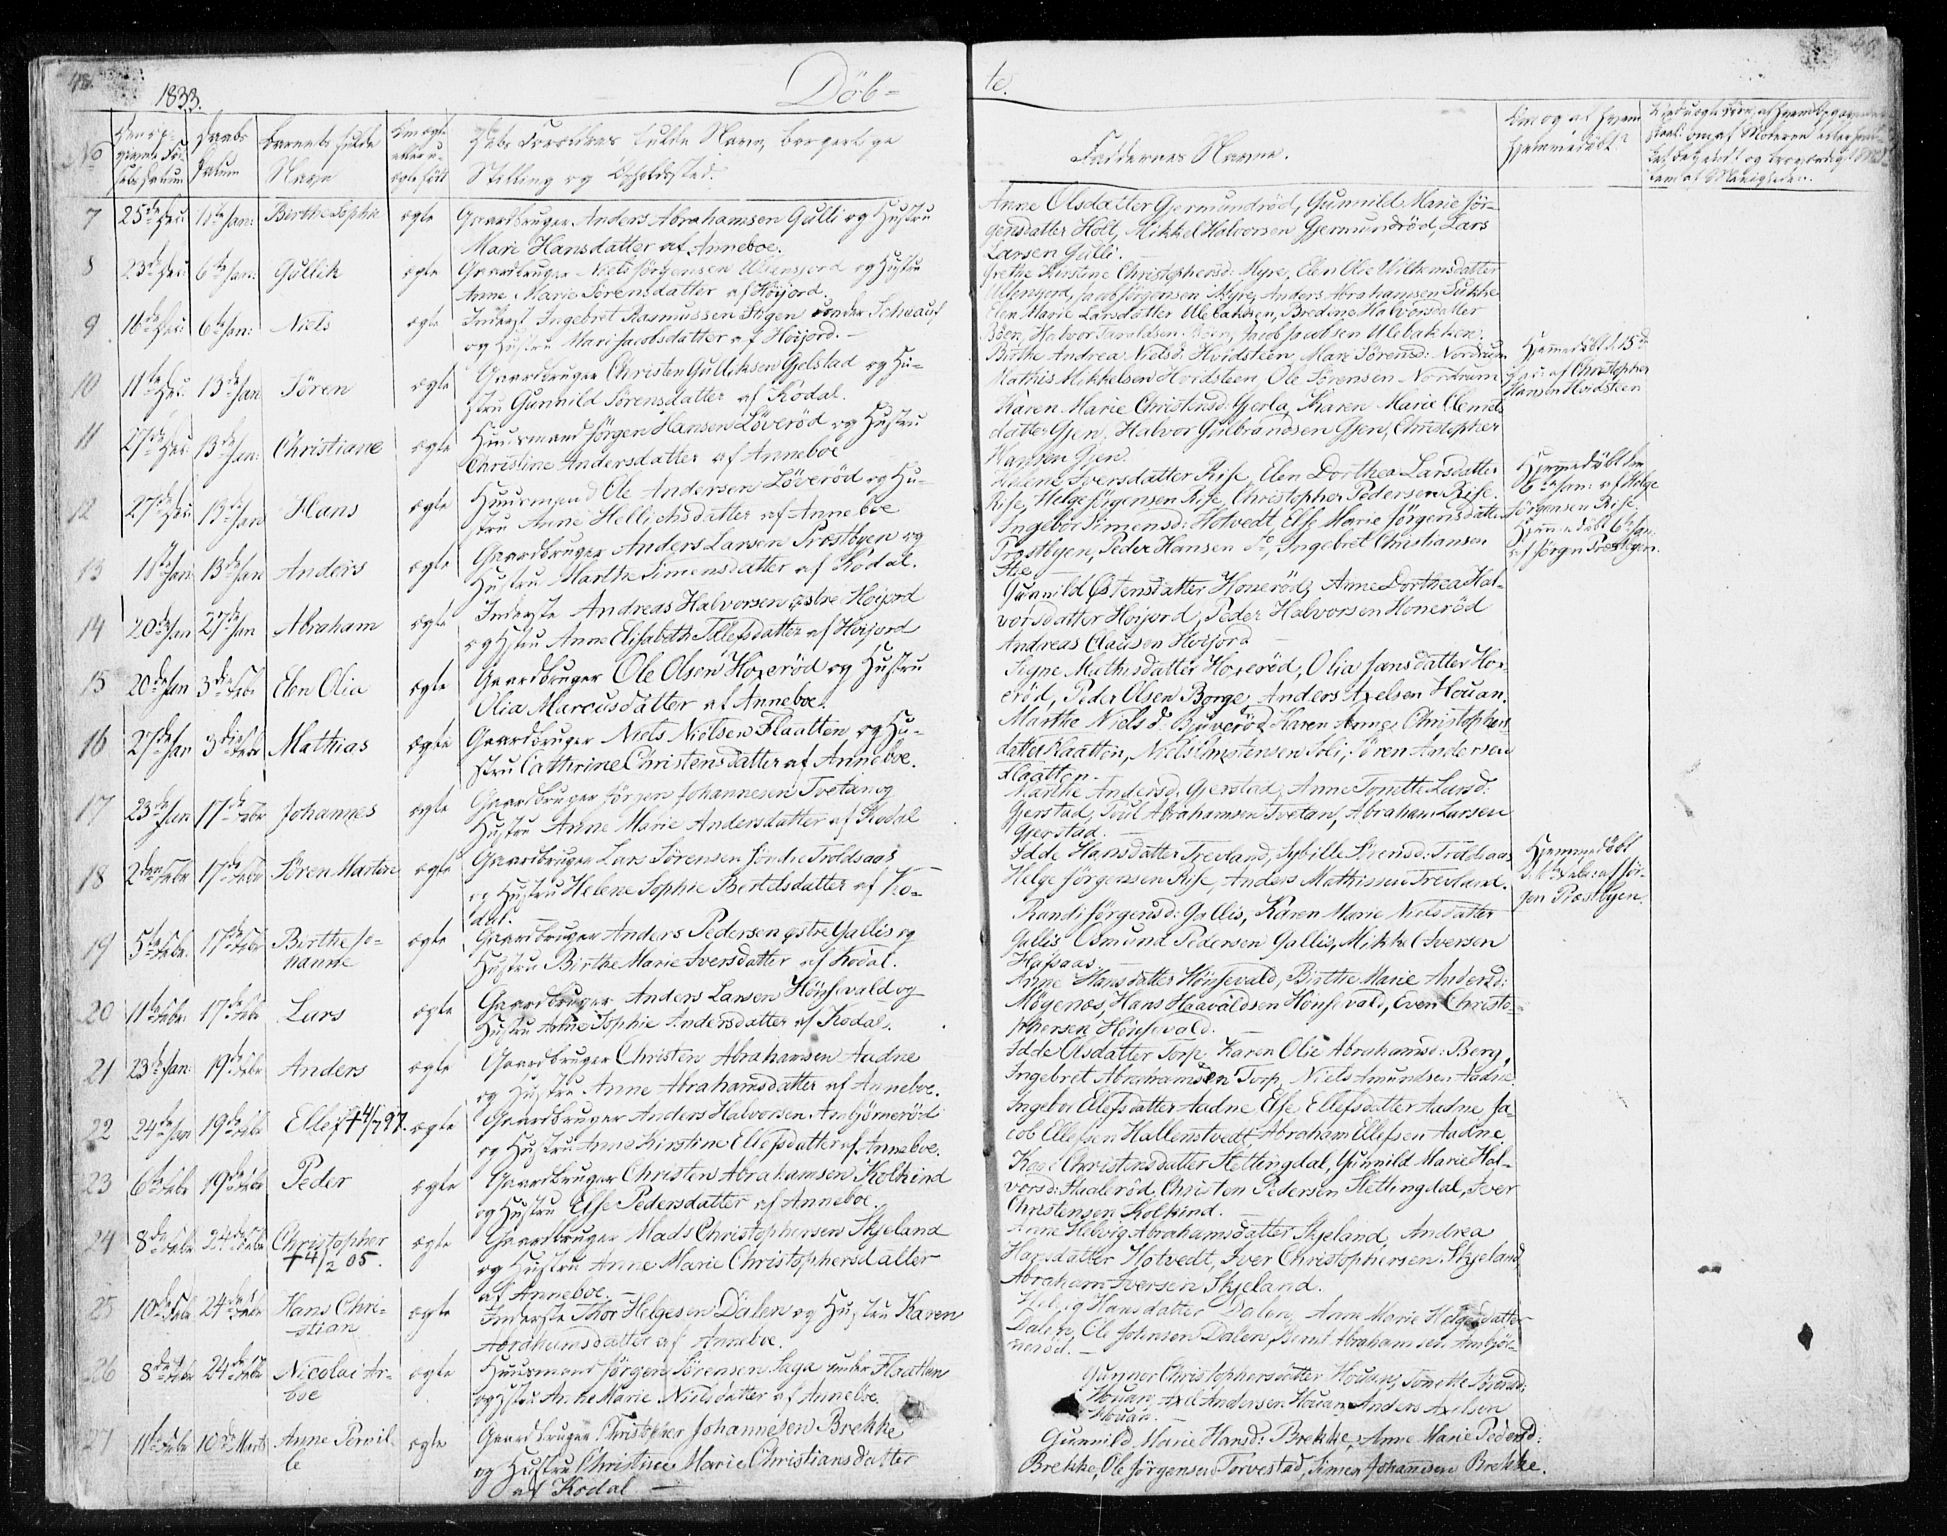 48.
1833.
Döb-
te.
No
Barnets fulde Navn
Faddernes Navne.
7 25de Dec: 11te Jan: Birthe Sophie ægte Gaardbruger Anders Abrahamsen Gulli og Hustru
Mari Hansdatter af Anneboe.
Anne Olsdatter Gjermundröd, Gunnild Marie Jör-
gensdatter Holt, Mikkel Halvorsen Gjermundröd, Lars
Larsen Gulli.
8 23de Dec: 6te Jan: Gullik ægte Gaardbruger Niels Jörgensen og Hustru
Anne Marie Sörensdatter af Höijord.
Grethe Kirstine Christophersd: Myre, Elen Olie Wilhemsdatter
Jacob Jörgensen Myre, Anders Abrahamsen
9 16de Dec: 6te Jan: Niels ægte Inderst Ingebret Rasmussen under
og Hustru Mari Jacobsdatter af Höijord.
Elen Marie Larsdatter Ulebakken, Bredine Halvorsdatter
Böen, Halvor Böen, Jacob Ulebakken.
10 11te Dec: 13de Jan Sören ægte Gaardbruger Christen Gulliksen Gjelstad og Hu-
stru Gunhild Sörensdatter af Kodal.
Birthe Andrea Nielsd: Hvidsteen, Mari Sörensd: Nordrum
Mathis Mikkelsen Hvidsteen, Ole Sörensen Nordrum
Hjemmedöbt d. 15de
Dec: af Christopher
Hansen Hvidsteen
11 27de Dec 13de Jan: Christiane ægte Huusmand Jörgen Hansen Löveröd og Hustru
Christine Andersdatter af Anneboe
Karen Marie Christensd: Gjerla, Karen Marie Clemets
datter Gjen, Halvor Gulbrandsen Gjen, Christopher
Hansen Gjen.
12 27de Dec 13de Jan Hans ægte Huusmand Ole Andersen Löveröd og Hu-
stru Anne Hellichsdatter af Anneboe
Helene Iversdatter Rise, Elen Dorthea Larsdatter
Rise, Helge Jörgensen Rise, Christopher Pedersen Rise.
Hjemmedöbt den
6te Jan: af Helge
Jörgensen Rise.
13 1ste Jan 13de Jan Anders ægte Gaardbruger Anders Larsen Prestbyen og
Hustru Marthe Simensdatter af Kodal.
Ingebor Simensd: Hotvedt, Else Marie Jörgensdatter
Prestbyen, Peder Hansen Do, Ingebret Christiansen
Hjemmedöbt 6te Jan
af Jörgen Prestbyen.
14 20de Jan 27de Jan Abraham ægte Inderste Andreas Halvorsen östre Höijord
og Hstru Anne Elisabeth Ellefsdatter af Höijord
Gunnild Östensdatter Honeröd, Anne Dorthea Hal-
vorsdatter Höijord, Peder Halvorsen Honeröd
Andreas Clausen Höijord
15 20de Jan 3de Febr Elen Olia ægte Gaardbruger Ole Olsen Hoxeröd og Hustru
Olia Marcusdatter af Anneboe.
Signe Mathisdatter Hoxeröd, Olia Jansdatter Hox-
eröd, Peder Olsen Borge, Anders Axelsen Houan.
16 27de Jan 3die Febr Mathias ægte Gaardbruger Niels Nielsen Flaatten og Hu-
stru Cathrine Christensdatter af Anneboe.
Marthe Nielsd: Bjuveröd, Karen Anne Christophers
datter Flaatten, Niels Soli, Sören Andersen
Flaatten.
17 23de Jan 17de Febr Johannes ægte Gaardbruger Jörgen Johannesen Tvetan og
Hustru Anne Marie Andersdatter af Kodal
Marthe Andersd: Gjerstad, Anne Tonette Larsd:
Gjerstad, Poul Abrahamsen Tvetan, Abraham Larsen
Gjerstad.
18 2den Febr 17de Febr Sören Martin ægte Gaardbruger Lars Sörensen söndre Troldsaas
og Hustru Helene Sophie Bertelsdatter af Ko-
dal.
Idde Hansdatter Trevland, Sybille Sörensd: Troldsaas
Helge Jörgensen Rise, Anders Mathissen Trevland.
Hjemmedöbt
af Jör-
gen Prestbyen.
19 5te Febr. 17de Febr Birthe Jo-
hanne ægte Gaardbruger Anders Pedersen östre Gallis og
Hustru Birthe Marie Iversdatter af Kodal.
Randi Jörgensd: Gallis, Karen Marie Nielsdatter
Gallis Osmund Pedersen Gallis, Mikkel Iversen
Hafsaas
20 11te Febr 17de Febr Lars ægte Gaardbruger Anders Larsen Hönsevald og
Hustru Anne Sophie Andersdatter af Kodal.
Anne Hansdatter Hönsevald, Birthe Marie Andersd:
Möyenæs, Hans Haavaldsen Hönsevald, Even Christo-
phersen Hönsevald.
21 23de Jan: 19de Febr Anders ægte Gaardbruger Christen Abrahamsen Aadne
og Hustru Anne Abrahamsdatter af Anneboe.
Idde Olsdatter Torp, Karen Olie Abrahamsd: Berg,
Ingebret Abrahamsen Torp, Niels Amundsen Aadne
22 24de Jan 19de Febr Ellef † 4/7 97. ægte Gaardbruger Anders Halvorsen Anbjörneröd
og Hustru Anne Kirstine Ellefsdatter af Anneboe.
Ingebor Ellefsdatter Aadne Else Ellefsdatter Aadne, Ja-
cob Ellefsen Hallenstvedt, Abraham Ellefsen Aadne
23 6te Febr 19de Febr Peder ægte Gaardbruger Christen Abrahamsen Kolkind
og Hustru Else Pedersdatter af Anneboe.
Kari Christensdatter Stettingdal, Gunnild Marie Hal-
vorsd: Christen Pedersen Stettingdal, Iver
Christensen Kolkind.
24 8de Febr 24de Febr Christopher
† 4/2 05. ægte Gaardbruger Mads Christophersen Skjeland
og Hustru Anne Marie Christophersdatter
af Anneboe.
Anne Helvig Abrahamsdatter Skjeland, Andrea
Hansdatter Hotvedt, Iver Christophersen Skjeland
Abraham Iversen Skjeland.
25 10de Febr 24de Febr Hans Chri-
stian ægte Inderste Thor Helgesen Dalen og Hustru Karen
Abrahamsdatter af Anneboe.
Helvig Hansdatter Dalen, Anne Marie Helgesdatter
Dalen, Ole Johnsen Dalen, Bernt Abrahamsen Anbjör-
neröd.
26 8de Febr 24de Febr Nicolai Ar-
boe ægte Huusmand Jörgen Sörensen Saga under Flaatten
og Hstru Anne Marie Nielsdatter af Anneboe.
Gunnor Christophersdatter Houan, Tonette
Houan, Axel Andersen Houan, Anders Axelsen
Houan.
27 11te Febr 10de Marts Anne Pernil-
le ægte Gaardbruger Christopher Johannesen Brekke
og Hustru Christine Marie Christiansdatter
af Kodal
Gunnild Marie Hansd: Brekke, Anne Marie Pedersd:
Brekke, Ole Jörgensen Torvestad, Simen Johannesen Brekke.